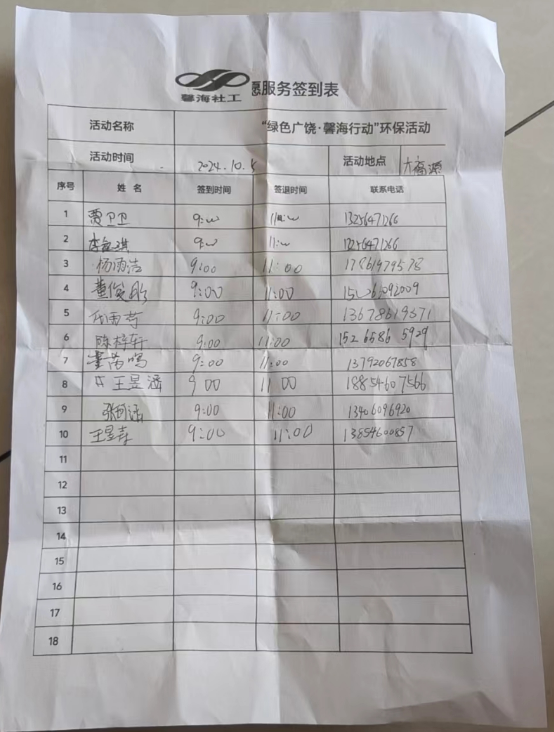 馨海社工
愿服务签到表
活动名称 "绿色广饶·馨海行动"环保活动
活动时间 2024.10.5 活动地点 大商源
序号 姓名 签到时间 签退时间 联系电话
1 贾卫卫 9:00 11:00
2 9:00 11:00
3 杨雨洁 9:00 11:00
4 9:00 11:00
5 9:00 11:00 13678619371
6 陈梓轩 9:00 11:00 15266865929
7 9:00 11:00 13792067858
8 王昱涵 9 00 11 00 18854607566
9 9:00 11:00 13406096920
10 王昱 9:00 11:00 13854600857
11
12
13
14
15
16
17
18